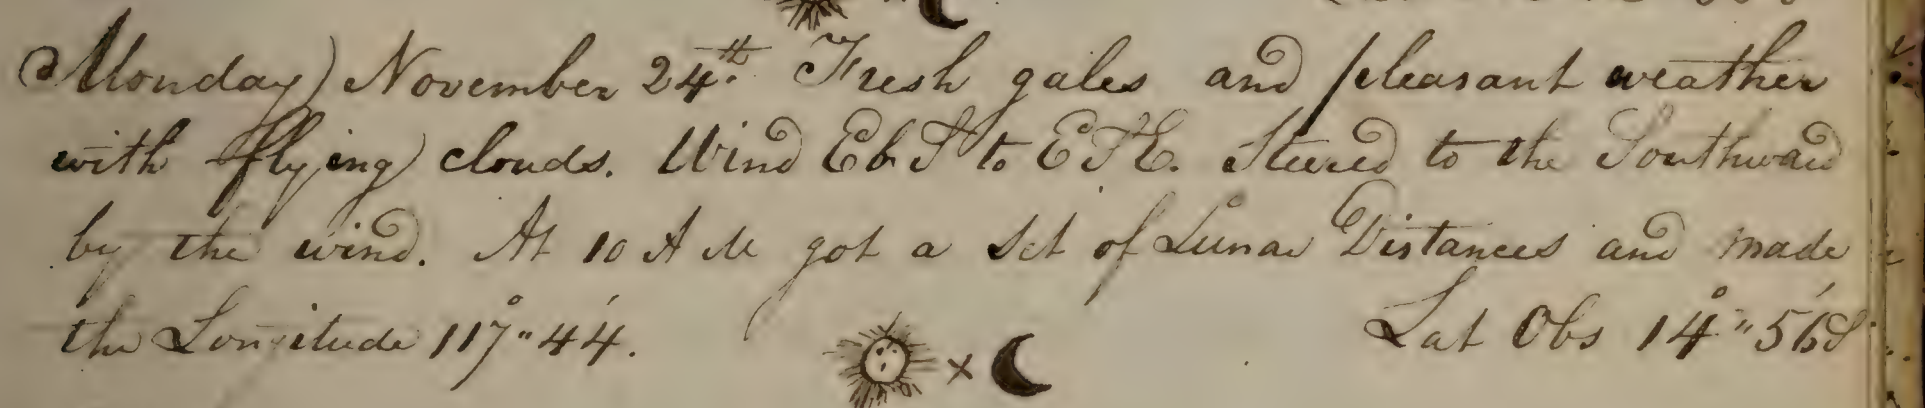 Monday) November 24th. Fresh gales and pleasant weather
with flying clouds. Wind EbS to ESE. Steered to the Southward
by the wind. At 10 A M got a Set of Lunar Distances and made
the Longitude 117°"44'. Lat Obs 14°"56'S